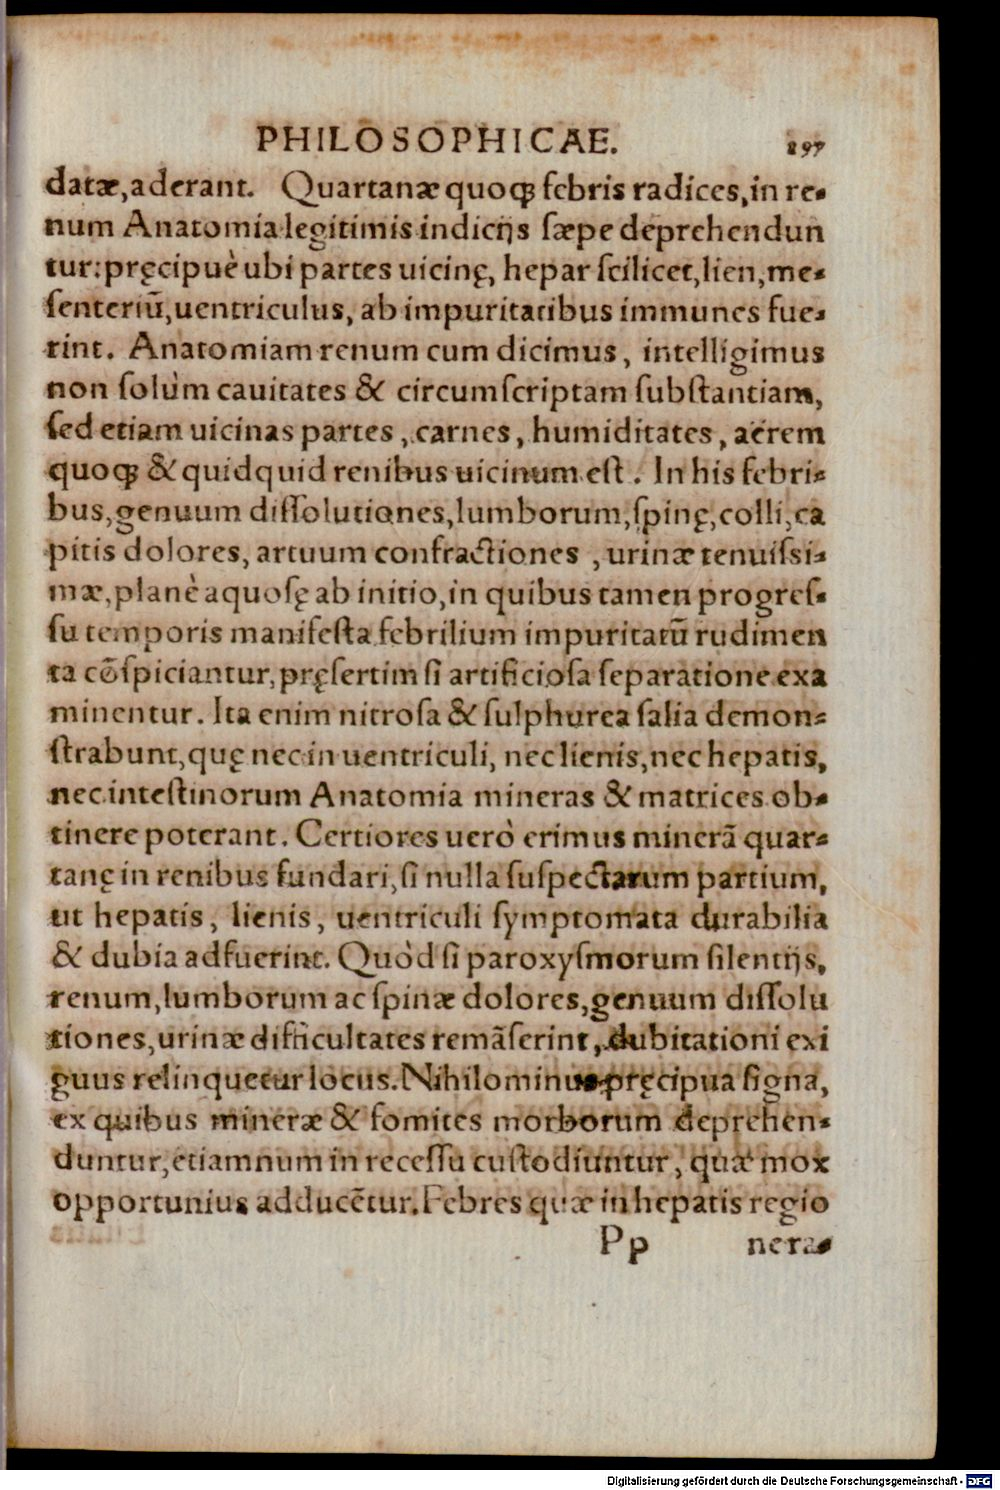 PHILOSOPHICAE. 297
datæ,aderant. Quartanæ quoqꝫ febris radices,in re-
num Anatomia legitimis indicijs sæpe deprehendun
tur:pręcipuè ubi partes uicinę, hepar scilicet,lien,me-
senteriũ,uentriculus, ab impuritatibus immunes fue-
rint. Anatomiam renum cum dicimus, intelligimus
non solùm cauitates & circumscriptam substantiam,
sed etiam uicinas partes, carnes, humiditates, aërem
quoqꝫ & quidquid renibus uicinum est. In his febri-
bus,genuum dissolutiones,lumborum,spinę,colli,ca
pitis dolores, artuum confractiones, urinæ tenuissi-
mæ,planè aquosę ab initio,in quibus tamen progres-
su temporis manifesta febrilium impuritatũ rudimen
ta cõspiciantur,pręsertim si artificiosa separatione exa
minentur. Ita enim nitrosa & sulphurea salia demon-
strabunt,quę nec in uentriculi, nec lienis,nec hepatis,
nec intestinorum Anatomia mineras & matrices ob-
tinere poterant. Certiores uerò erimus minerã quar-
tanę in renibus fundari,si nulla suspectarum partium,
ut hepatis, lienis, uentriculi symptomata durabilia
& dubia adfuerint. Quòd si paroxysmorum silentijs,
renum,lumborum ac spinæ dolores,genuum dissolu
tiones,urinæ difficultates remãserint, dubitationi exi
guus relinquetur locus. Nihilominus pręcipua signa,
ex quibus mineræ & fomites morborum deprehen-
duntur,etiamnum in recessu custodiuntur, quæ mox
opportunius adducẽtur. Febres quæ in hepatis regio
Pp nera-
Digitalisierung gefördert durch die Deutsche Forschungsgemeinschaft - DFG